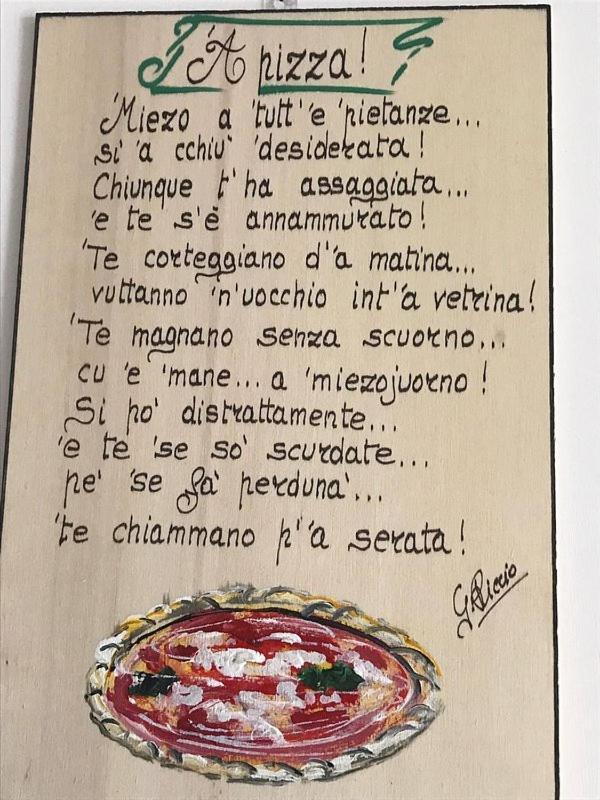 'A pizza!
'Miezo a 'tutt' 'e 'pietanze...
si' 'a cchiu' 'desiderata!
Chiunque t'ha assaggiata...
'e te s'è annammurato!
'Te corteggiano d' 'a matina...
vuttanno 'n'uocchio int' 'a vetrina!
'Te magnano senza scuorno...
cu 'e 'mane... a 'miezojuorno!
Si po' distrattamente...
'e te 'se so' scurdate...
pe' 'se fa' perduna'...
'te chiammano p' 'a serata!